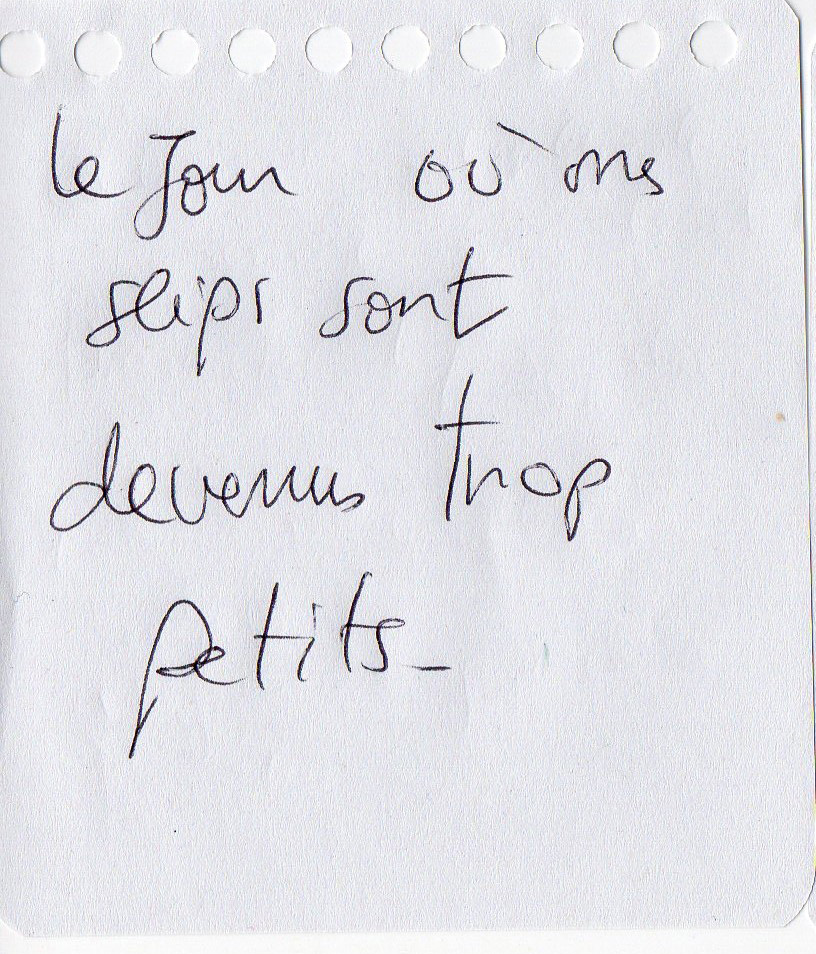 le jour où mes
slips sont
devenus trop
petits_